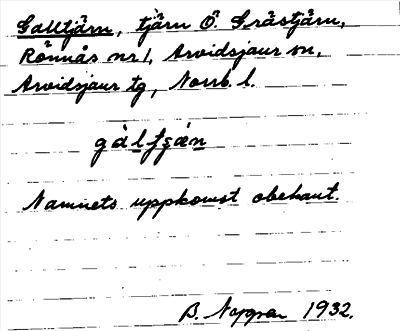 Galltjärn, tjärn Ö. Gråstjärn,
Rönnås nr 1, Arvidsjaur sn,
Arvidsjaur tg, Norrb. l.
gàlʃʂæ̀n
Namnets uppkomst obekant.
B. Nygren 1932.